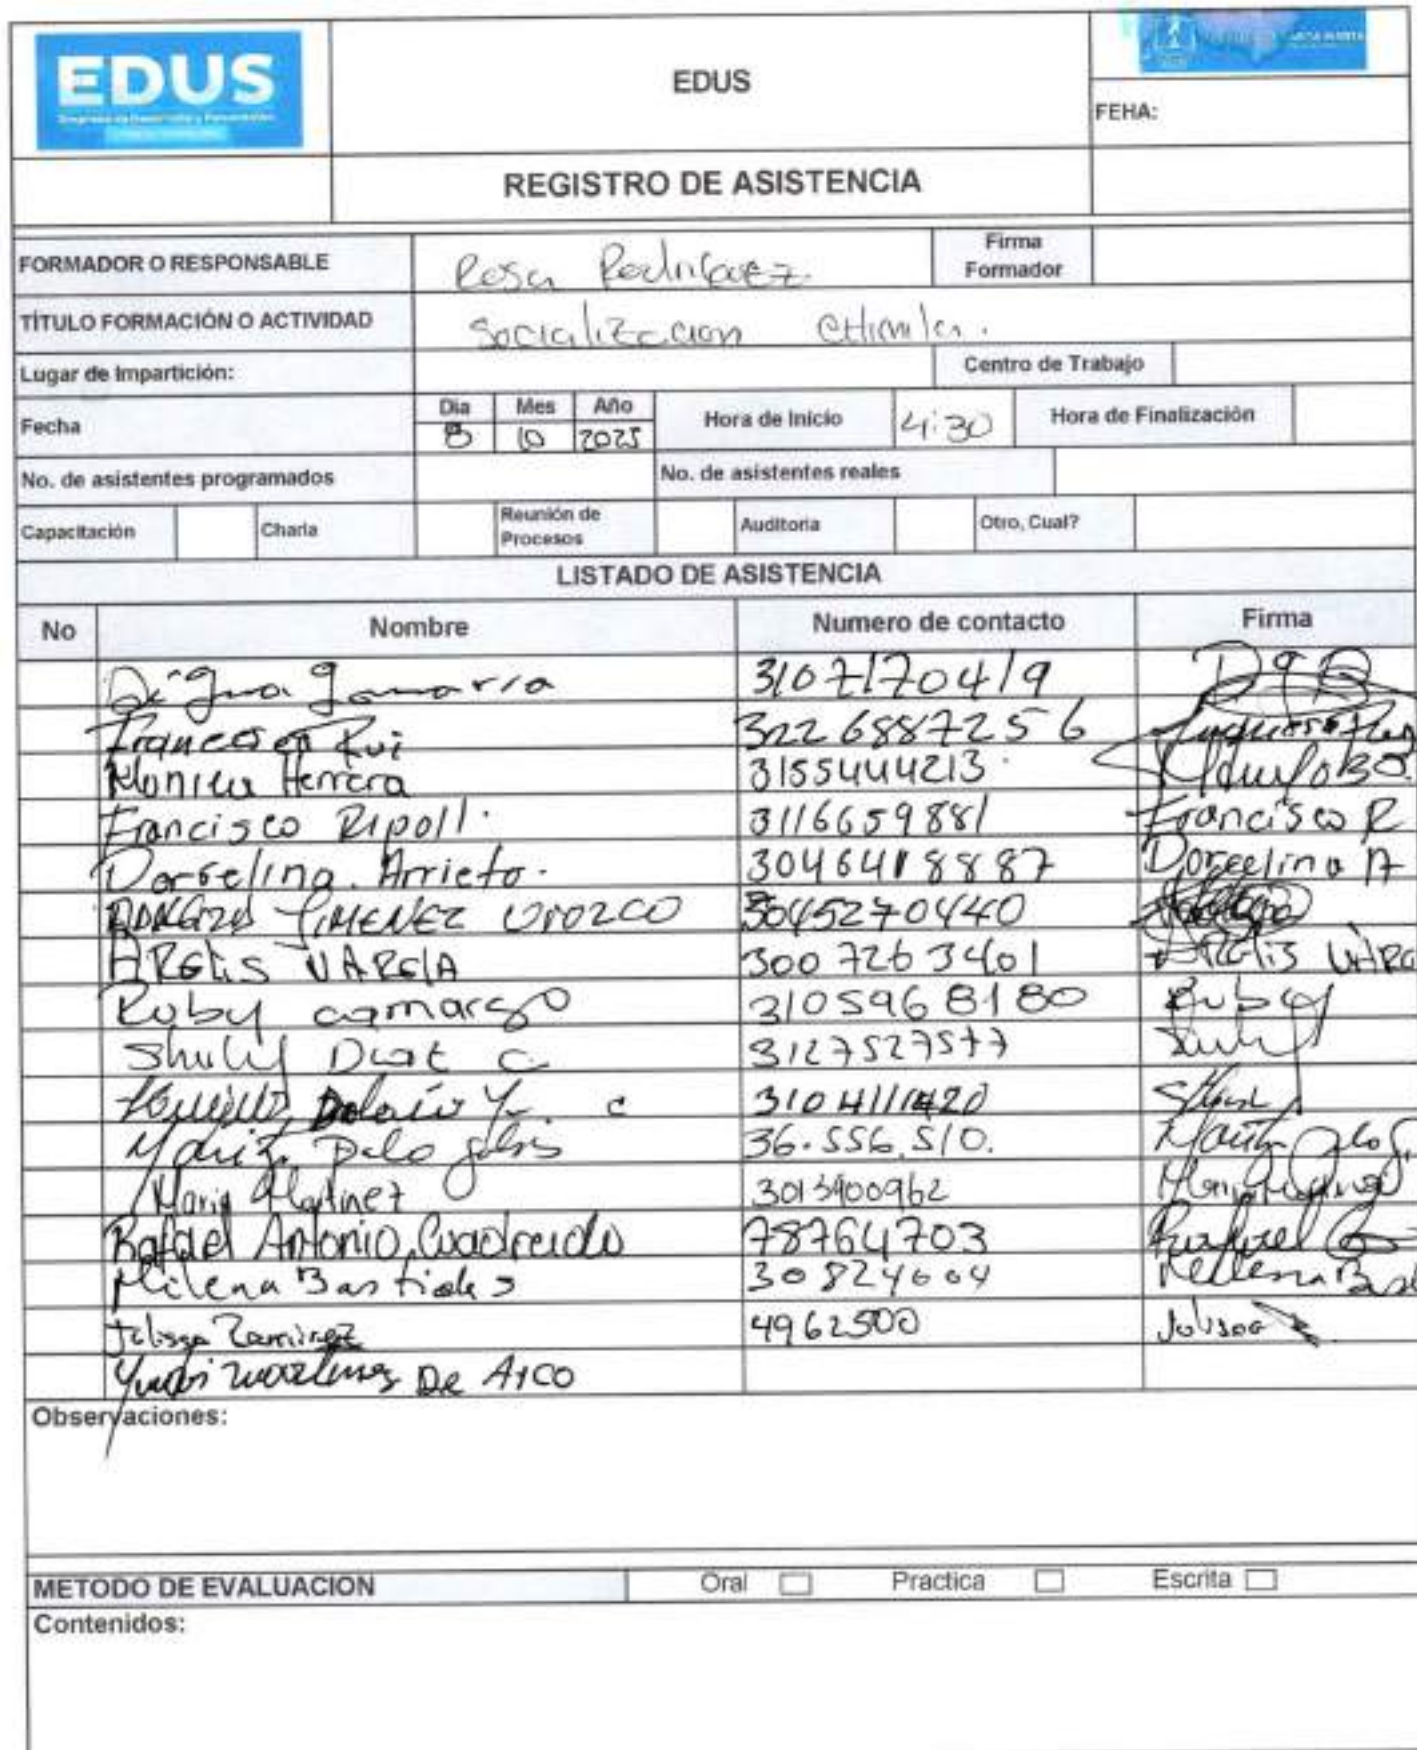 EDUS
EDUS
FEHA:
REGISTRO DE ASISTENCIA
FORMADOR O RESPONSABLE Rosa Rodriguez Firma Formador
TÍTULO FORMACIÓN O ACTIVIDAD Socialización Chimila.
Lugar de Impartición: Centro de Trabajo
Fecha Dia Mes Año Hora de Inicio 4:30 Hora de Finalización
8 10 2025
No. de asistentes programados No. de asistentes reales
Capacitación Charla Reunión de Procesos Auditoria Otro, Cual?
LISTADO DE ASISTENCIA
No Nombre Numero de contacto Firma
3107170419
322 6887256
Monica Herrera 3155444213
Francisco Ripoll. 3116659881 Francisco R
Arrieta. 30464188887
JIMENEZ OROZCO 3045270440
ARGLIS VARELA 300 7263401
Ruby camargo 3105968180 Ruby
Diat C 3127527577
36.556.510.
Maria Martinez 3013900962
Rafael Antonio Cuadrado 78764703 Rafael
Milena Bastidas 30824604
Julissa Ramirez 4962500 Julissa
De Arco
Observaciones:
METODO DE EVALUACION Oral Practica Escrita
Contenidos: